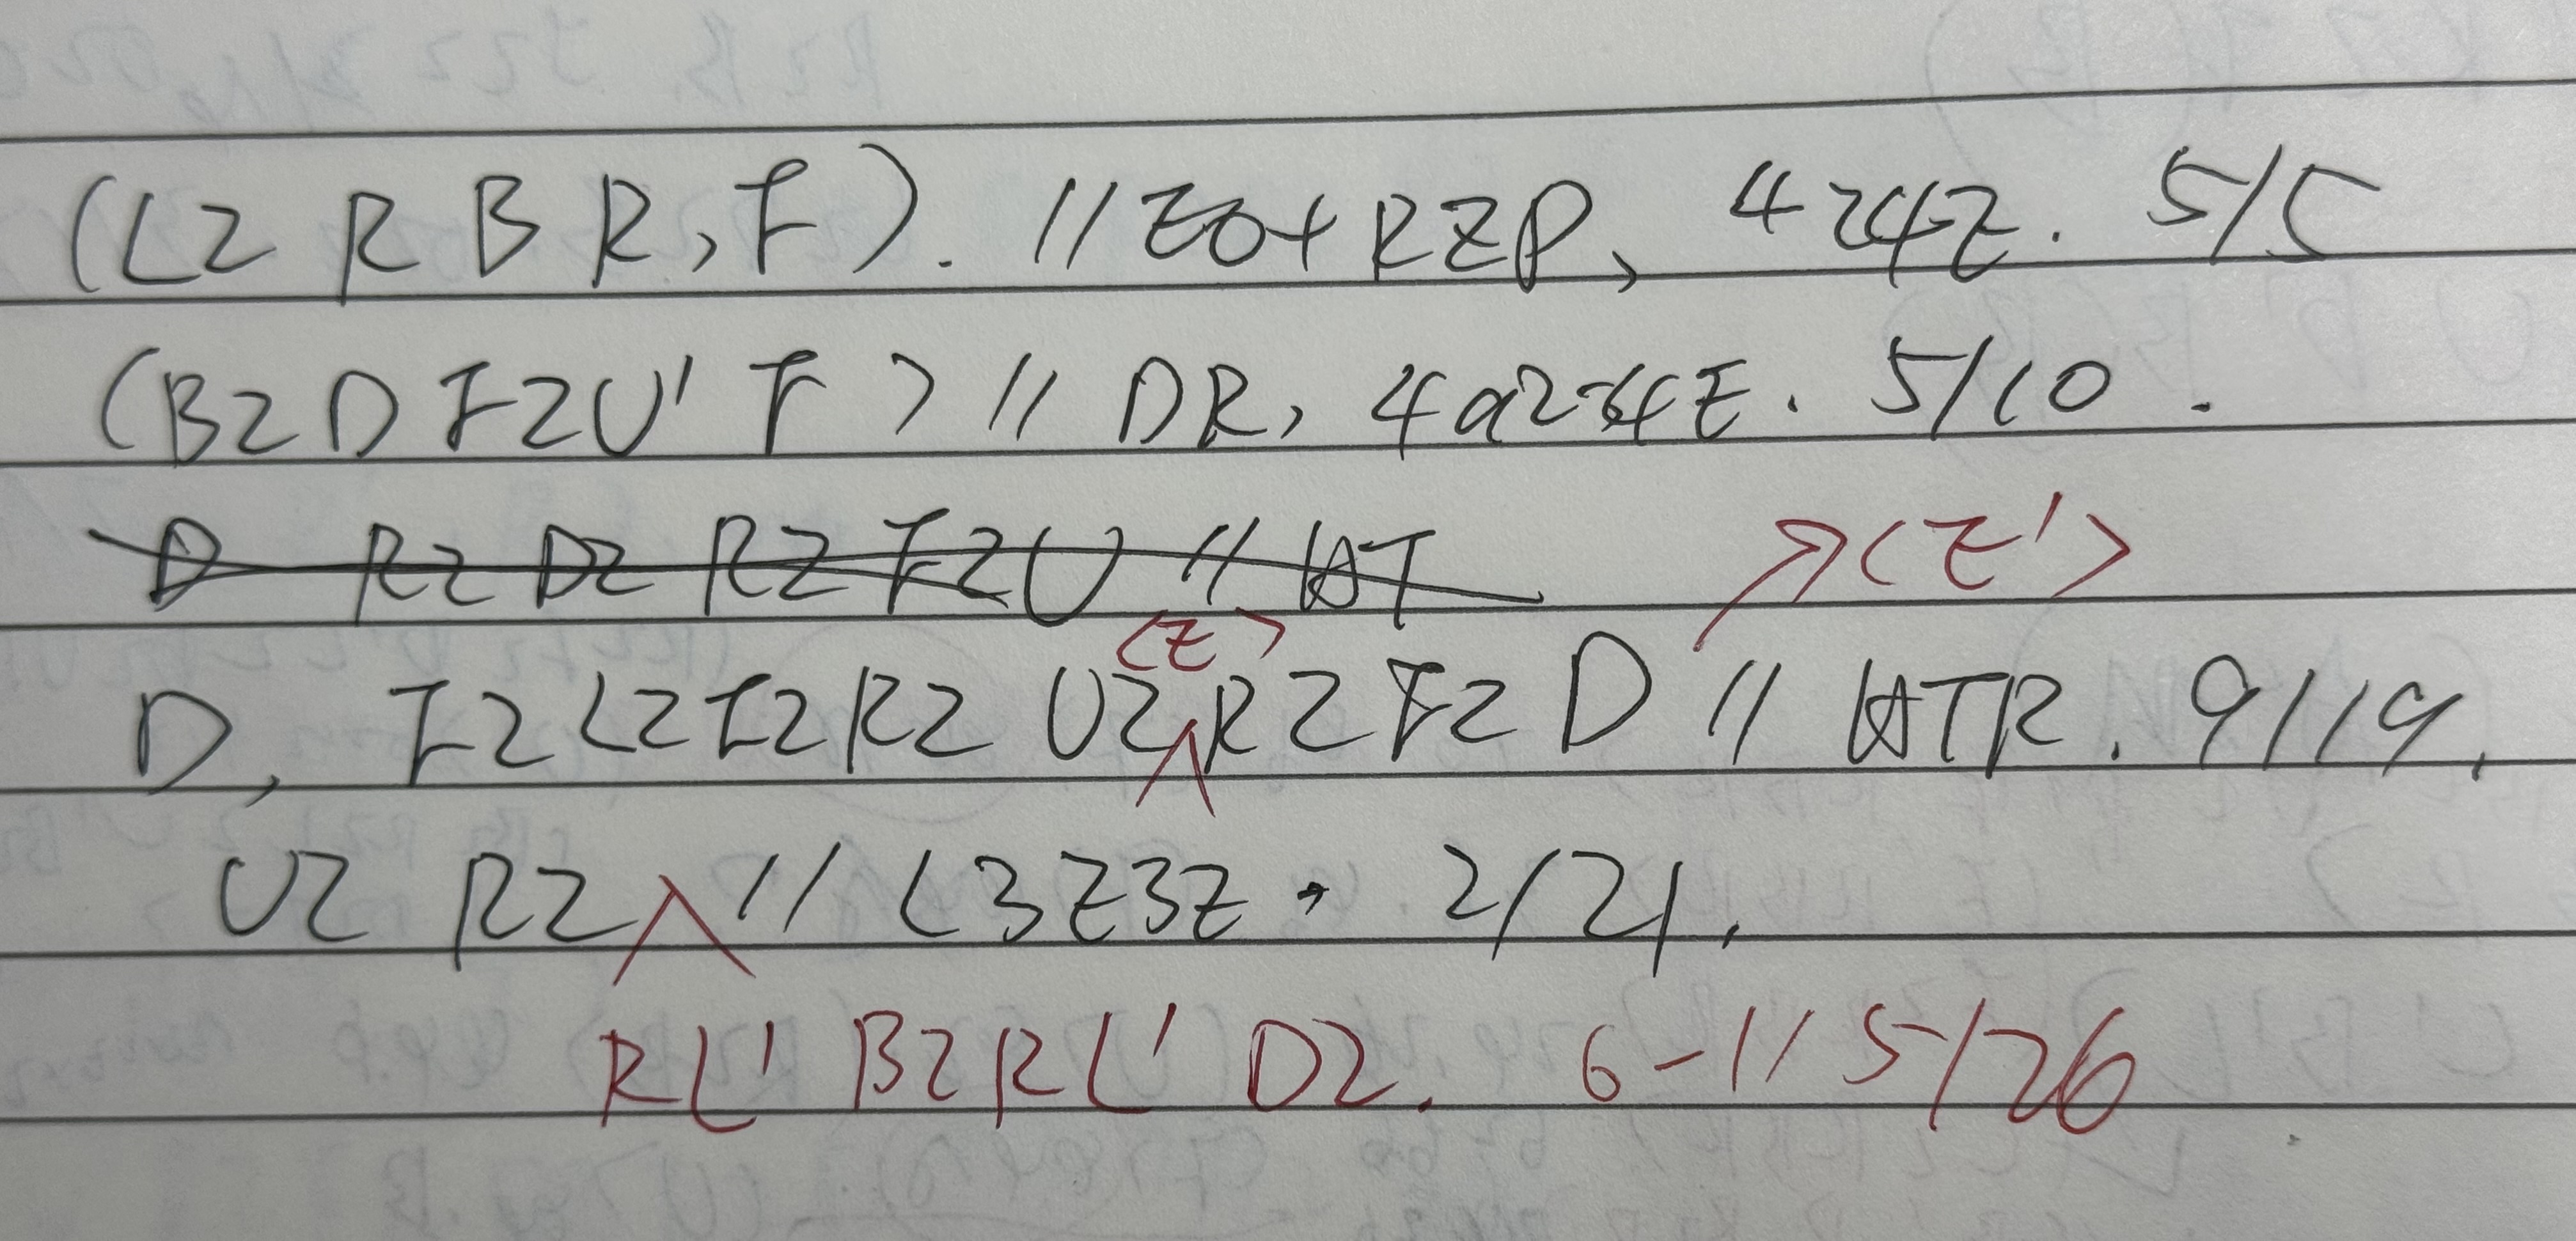 (L2 R B R, F). // EO+RZP, 4c4E. 5/5
(B2 D F2 U' F) // DR, 4a2 4E. 5/10.
D R2 D2 R2 F2 U // HT
<E'>
<E>
D, F2 L2 F2 R2 U2 R2 F2 D // HTR. 9/19.
U2 R2 // L3E3E. 2/21.
R L' B2 R L' D2. 6-1// 5/26